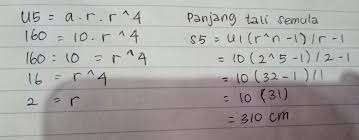 U5 = a. r. r^4
160 = 10. r^4
160 : 10 = r^4
16 = r^4
2 = r
Panjang tali semula
S5 = U1 (r^n - 1) / r - 1
= 10 (2^5 - 1) / 2 - 1
= 10 (32 - 1) / 1
= 10 (31)
= 310 cm